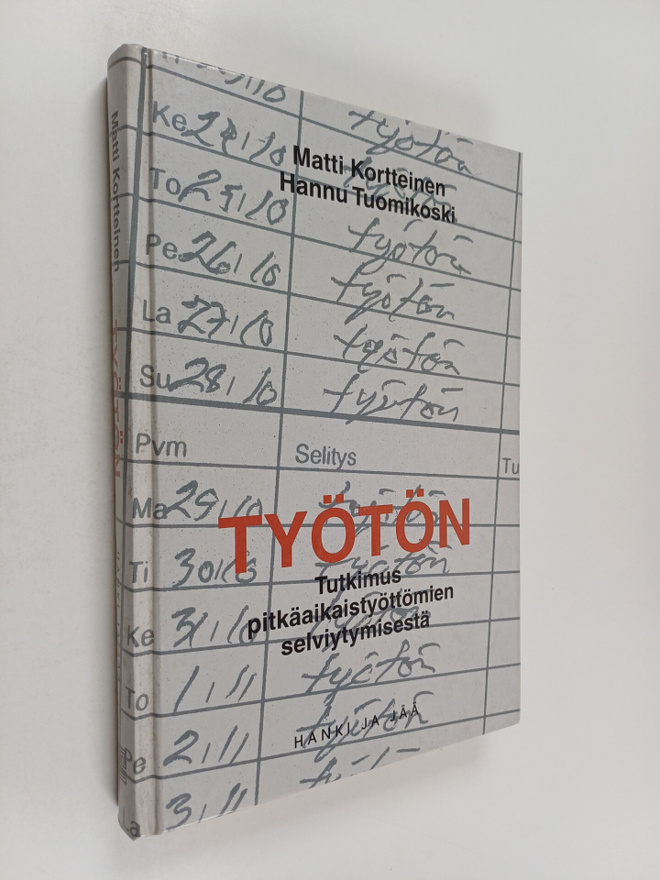 Matti Kortteinen
TYÖTÖN
Ke 24/10 työtön
Matti Kortteinen
Hannu Tuomikoski
To 25/10 työtön
Pe 26/10 työtön
La 27/10 työtön
Su 28/10 työtön
Pvm Selitys Tu
Ma 29/10 työtön
TYÖTÖN
Ti 30/10 työtön
Tutkimus
pitkäaikaistyöttömien
selviytymisestä
Ke 31/10
To 1/11 työtön
HANKI JA JÄÄ
Pe 2/11 työtön
La 3/11